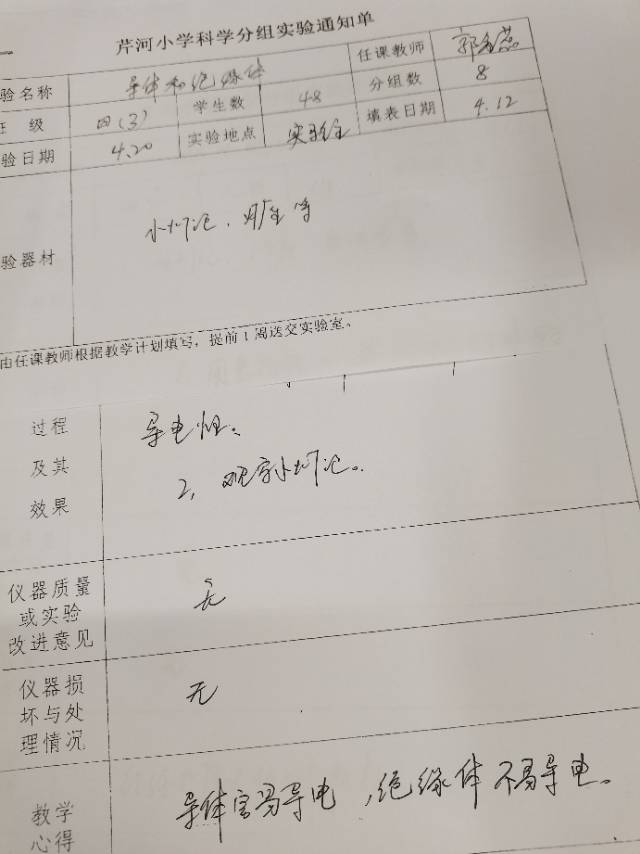 芹河小学科学分组实验通知单
验名称 导体和绝缘体 任课教师 郭
班 级 四(3) 学生数 48 分组数 8
验日期 4.20 实验地点 实验室 填表日期 4.12
验器材 小灯泡、 等
由任课教师根据教学计划填写，提前1周送交实验室。
过程
及其
效果
导电性。
2、观察小灯泡。
仪器质量
或实验
改进意见
无
仪器损
坏与处
理情况
无
教学
心得
导体容易导电，绝缘体不易导电。